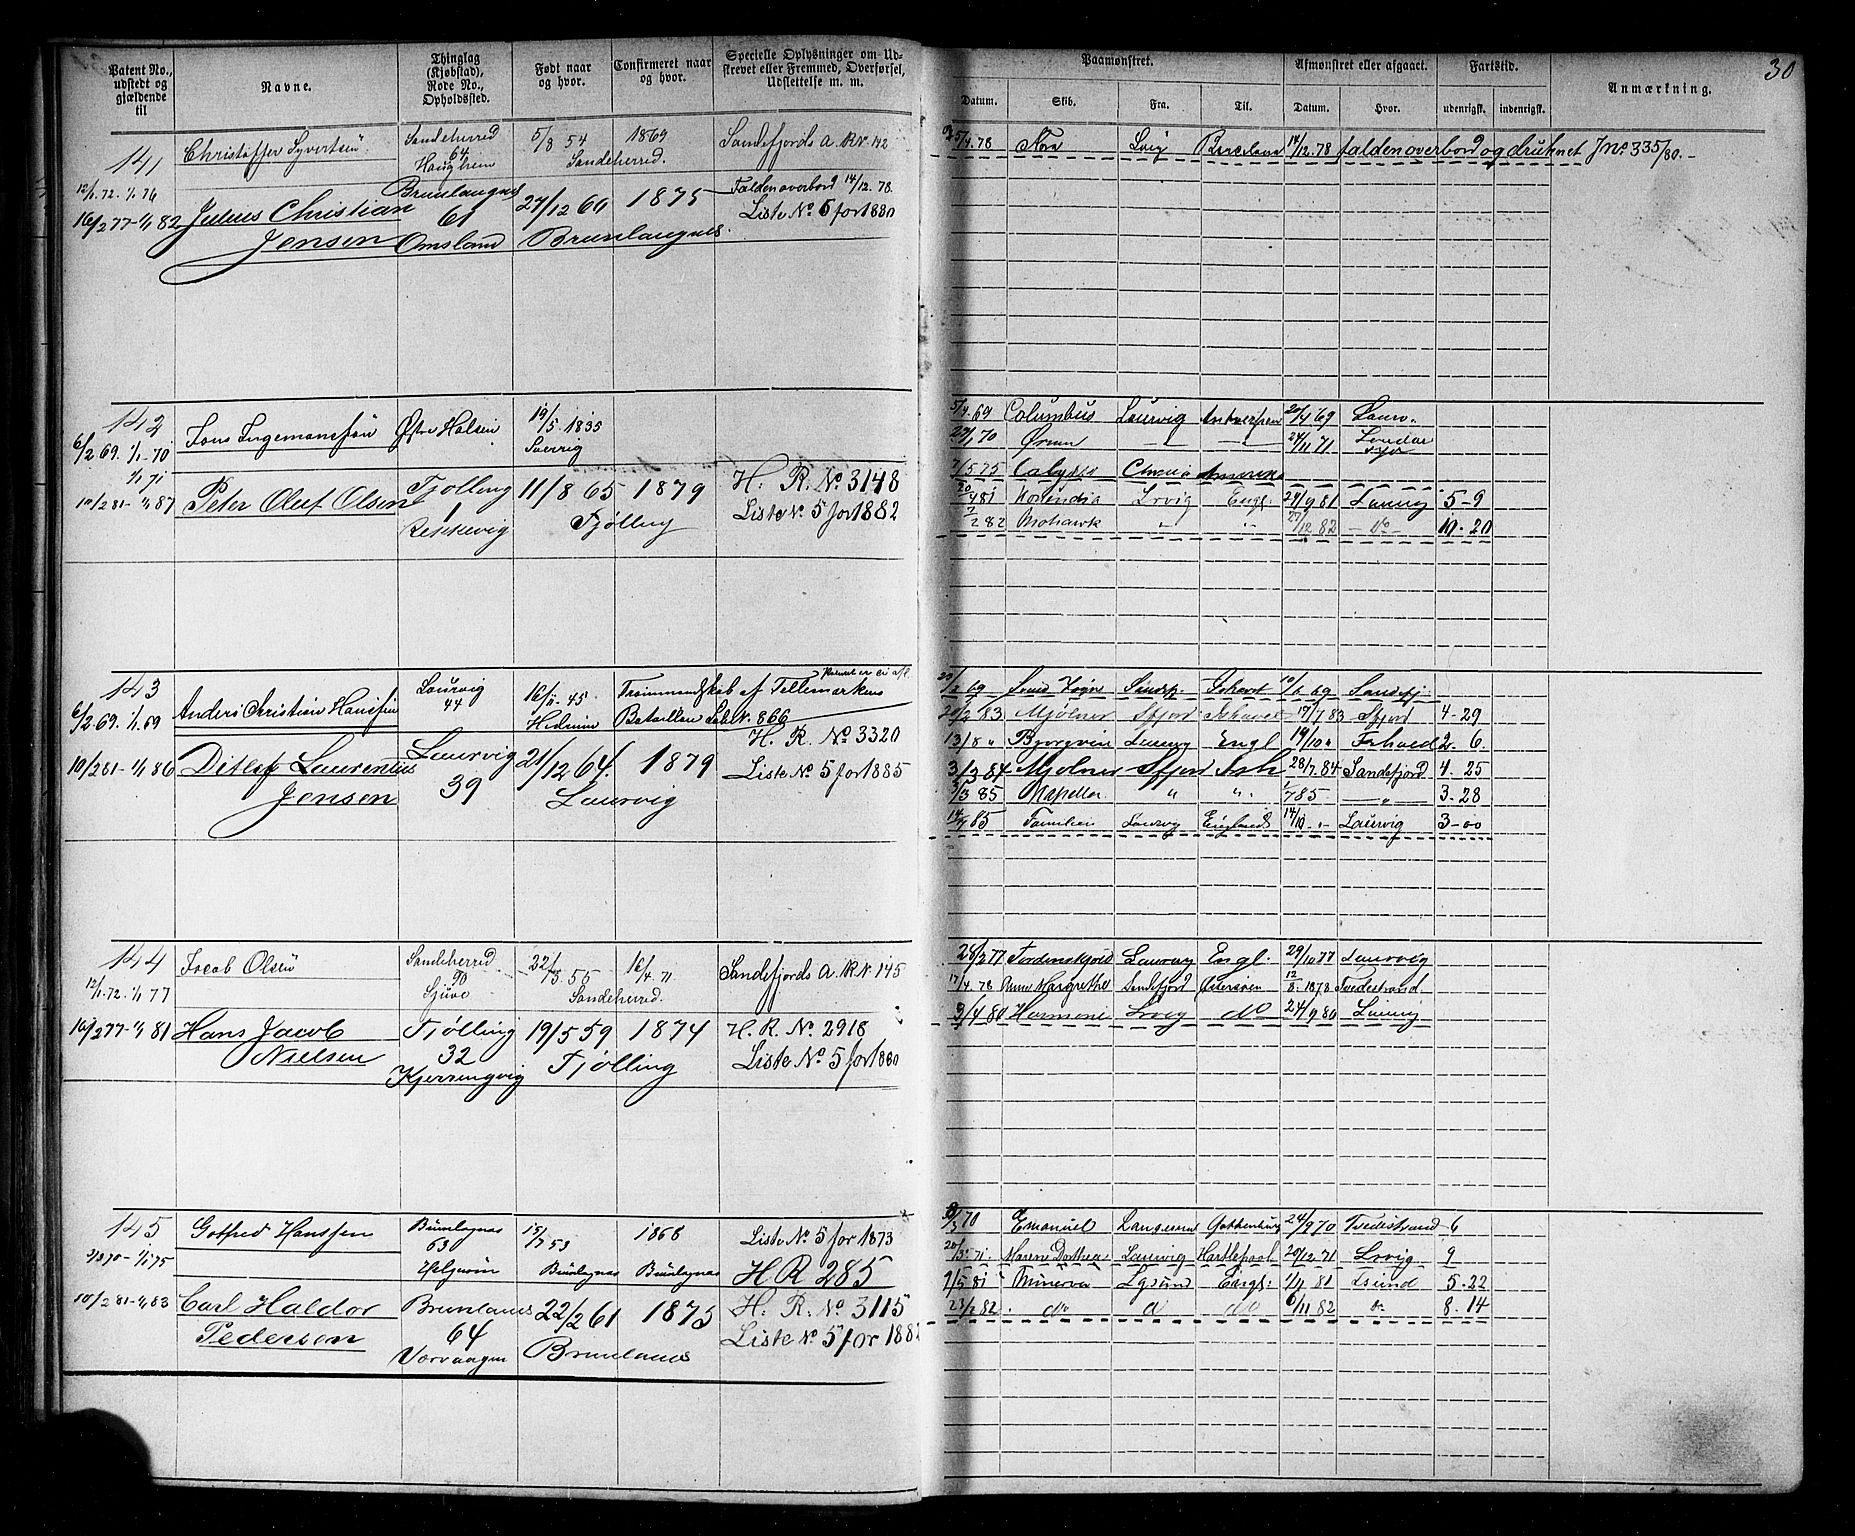 30
Patent No., udstedt og gjældende til
Navne.
Thinglag (Kjøbstad), Rode No., Opholdssted.
Født naar og hvor.
Confirmeret naar og hvor.
Specielle Oplysninger om Udstrevet eller Fremmed, Overførsel, Udslettelse m. m.
Paamønstret.
Afmønstret eller afgaaet.
Fartstid.
Anmærkning.
Datum. Skib. Fra. Til. Datum. Hvor. udenrigsk. indenrigsk.
141 Christoffer Syvertsen Sandeherred 64 Haughem 5/8 54 1869 Sandeherred. Sandefjords A. R.N. 142
12/1. 72. 1/1. 76
16/2 77-1/1 82 Julius Christian Jensen Brunlangnes 61 Omsland 27/12 60 1875 Brunlaugnes. Falden overbord 14/12. 78.
Liste No 5 for 1880
5/4. 78 Lvig 14/12. 78 falden overbord og druknet J No 335/80.-
142 Jons Ingemansson Østre Halsen 19/5. 1835 Sverrig
6/2 69. 1/1-70
1/1 71
5/4. 69 Columbus Laurvig Antwerpen 20/4 69 Laurv.
27/1 70 Ørnen 24/11 71
7/5 75 Calypso Amerika
10/2 81-1/1 87 Peter Oluf Olsen Tjølling 1 11/8 65 1879 Tjølling H. R. No 3148
Liste No 5 for 1882
20/4 81 Lvig Engl. 29/9 81 Laurvig 5-9
7/2 82 Mohawk " " 27/12 82 - do - 10-20
143 Anders Christian Hanssen Laurvig 44 16/11. 45 Hedrum Trainmandskab af Tellemarkens Bataillon Lab N. 866
6/2 69. 1/1 69
69 Sandefj. Ishavet 69 Sandefj.
10/2 81-1/1 86 Ditlef Laurentius Jensen Laurvig 39 21/12 64. 1879 Laurvig H. R. No 3320
Liste No 5 for 1885
20/2 83 Mjølner Sfjord Ishavet 17/7 83 Sfjord 4-29
13/8 " Bjørgvin Laurvig Engl 19/10 " 2. 6.
3/3 84 Mjølner Sfjord Ish 28/7. 84 Sandefjord 4. 25
3/3 85 Kapella " " 785 - " - 3-28
14/7 85 Familien Laurvig Englands 14/10 - " Laurvig 3-00
144 Jacob Olsen Sandeherred 70 22/3. 55 Sandeherred. 16/4. 71 Sandefjords A. R.N. 145
12/1. 72. 1/1 77
16/2 77-1/1 81 Hans Jacob Nielsen Tjølling 32 Kjerringvig 19/5 59 1874 Tjølling H. R. No 2918
Liste No 5 for 1880
28/2 77 Tordenskjold Laurvig Engl. 29/10 77 Laurvig
17/4. 78 Anne Margrethe Sandefjord Østersøen 12/8. 1878 Tvedestrand.
3/4 80 Harmoni Lvig do 24/9 80 Laurvig
145 Gotfred Hanssen Brunlagnæs 63 15/7 53 Brunlagnæs 1868 Brunlagnæs Liste No 5 for 1873
H R 285
10/2 81-1/1 83 Carl Haldor Pedersen Brunlanes 64 22/2 61 1875 Brunlanes H. R. No 3115
Liste No 5 for 1882
70 Emanuel Langesund Gottenburg 24/9 70 Tvedestrand 6
71. Maren Dorthea Laurvig Hartlepool 20/12. 71 Lrvig 9
7/5 81 Minerva Lgsund Engl. 81 Lsund 5. 22
23/2 82 . do do 6/11 82 do 8. 14